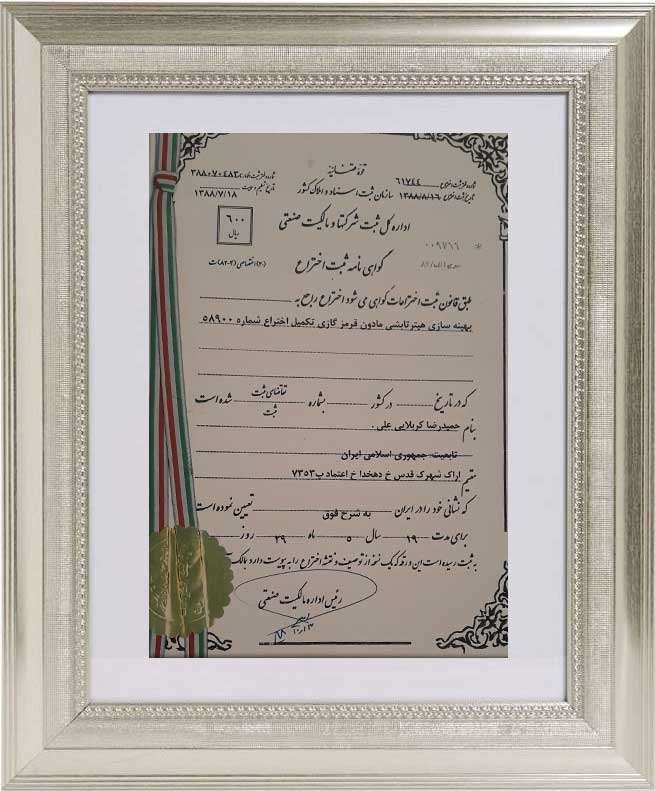 قوه قضائیه
شماره دفتر ثبت اختراع ۶۱۷۴۴
تاریخ ثبت اختراع ۱۳۸۸/۸/۱۶
سازمان ثبت اسناد و املاک کشور
۳۸۸۰۷۰۴۸۲
۱۳۸۸/۷/۱۸
اداره کل ثبت شرکتها و مالکیت صنعتی
۶۰۰
ریال
۰۰۹۷۶۶ *
گواهی نامه ثبت اختراع
طبق قانون ثبت اختراعات گواهی می شود اختراع راجع به
بهینه سازی هیتر تابشی مادون قرمز گازی تکمیل اختراع شماره ۵۸۹۰۰
که در تاریخ در کشور بشماره تقاضای ثبت ثبت شده است
بنام حمیدرضا کربلایی علی .
تابعیت: جمهوری اسلامی ایران
مقیم اراک شهرک قدس خ دهخدا خ اعتماد پ۷۳۵۳
که نشانی خود را در ایران به شرح فوق تعیین نموده است
برای مدت ۱۹ سال ۵ ماه ۲۹ روز
به ثبت رسیده است این ورقه که یک نسخه از توصیف و نقشه اختراع را به پیوست دارد مالک
رئیس اداره مالکیت صنعتی